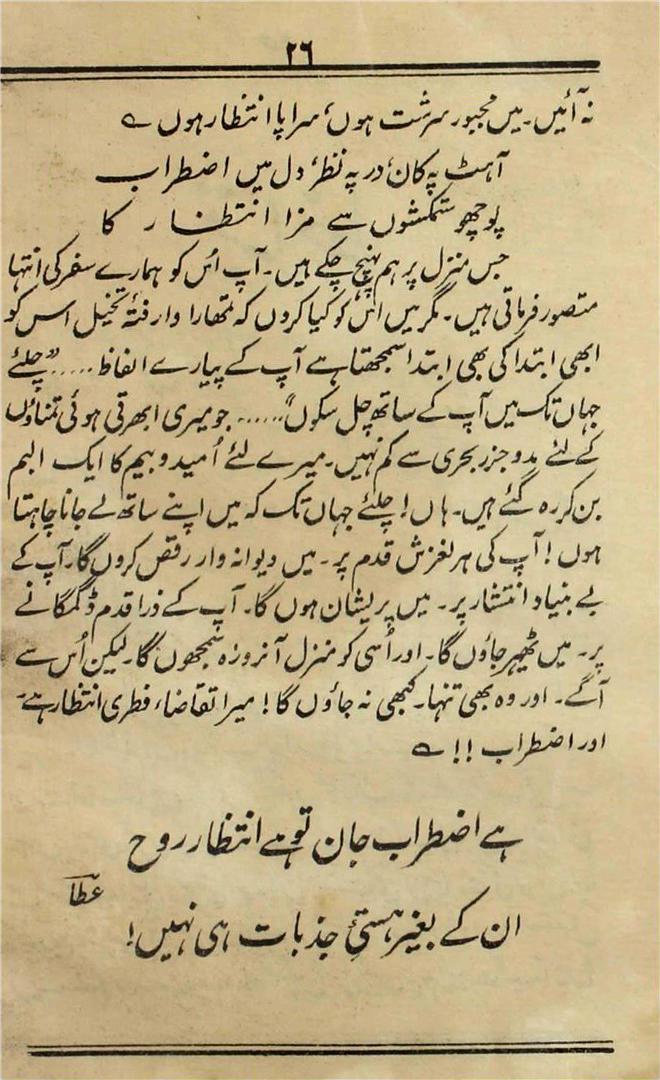 ۲۶
نہ آئیں۔ میں مجبور سرشت ہوں، سراپا انتظار ہوں ؎
آہٹ پہ کان، در پہ نظر، دل میں اضطراب
پوچھو ستمکشوں سے مزا انتظار کا
جس منزل پر ہم پہنچ چکے ہیں۔ آپ اُس کو ہمارے سفر کی انتہا
متصور فرماتی ہیں۔ مگر میں اس کو کیا کروں کہ تمھارا وارفتۂ تخیل اس کو
ابھی ابتدا کی بھی ابتدا سمجھتا ہے آپ کے پیارے الفاظ ..... "چلئے
جہاں تک میں آپ کے ساتھ چل سکوں" ...... جو میری ابھرتی ہوئی تمناؤں
کے لئے مدوجزر بحری سے کم نہیں۔ میرے لئے اُمید و بیم کا ایک البم
بن کر رہ گئے ہیں۔ ہاں! چلئے جہاں تک کہ میں اپنے ساتھ لے جانا چاہتا
ہوں! آپ کی ہر لغزش قدم پر۔ میں دیوانہ وار رقص کروں گا۔ آپ کے
بے بنیاد انتشار پر۔ میں پریشان ہوں گا۔ آپ کے ذرا قدم ڈگمگانے
پر۔ میں ٹھیر جاؤں گا۔ اور اُسی کو منزل آنروزہ سمجھوں گا۔ لیکن اُس سے
آگے۔ اور وہ بھی تنہا۔ کبھی نہ جاؤں گا! میرا تقاضاء فطری انتظار ہے۔
اور اضطراب !! ؎
ہے اضطراب جان تو ہے انتظار روح
عطا
ان کے بغیر ہستیٔ جذبات ہی نہیں!